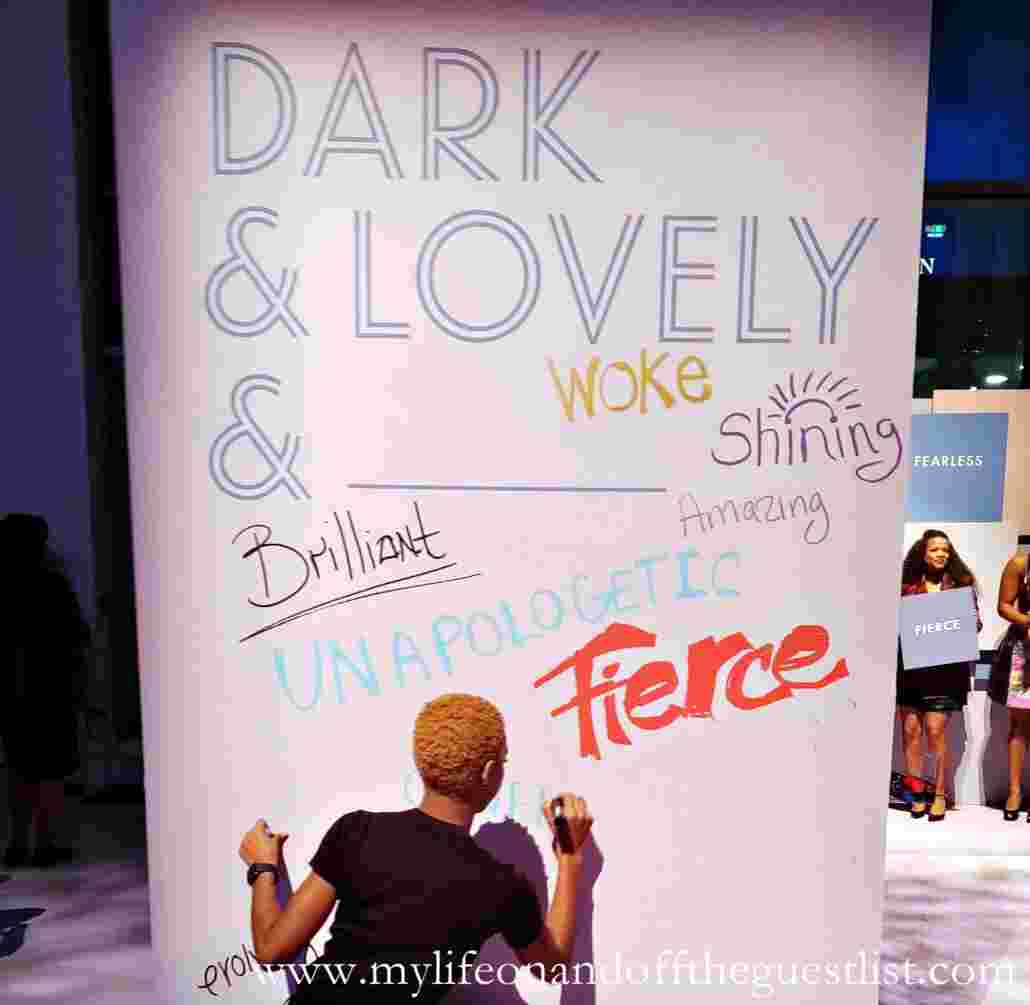 DARK
& LOVELY
&
WOKE
Shining
Amazing
Brilliant
UNAPOLOGETIC
Fierce
N
FEARLESS
FIERCE
www.mylifeonandofftheguestlist.com